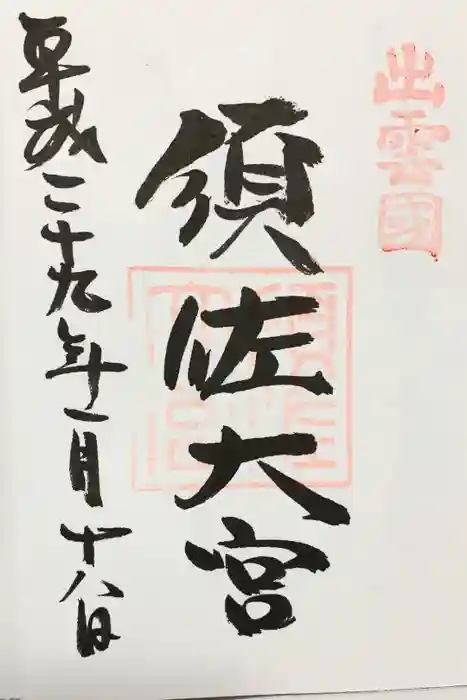 出雲國
須佐大宮
平成二十九年一月十八日